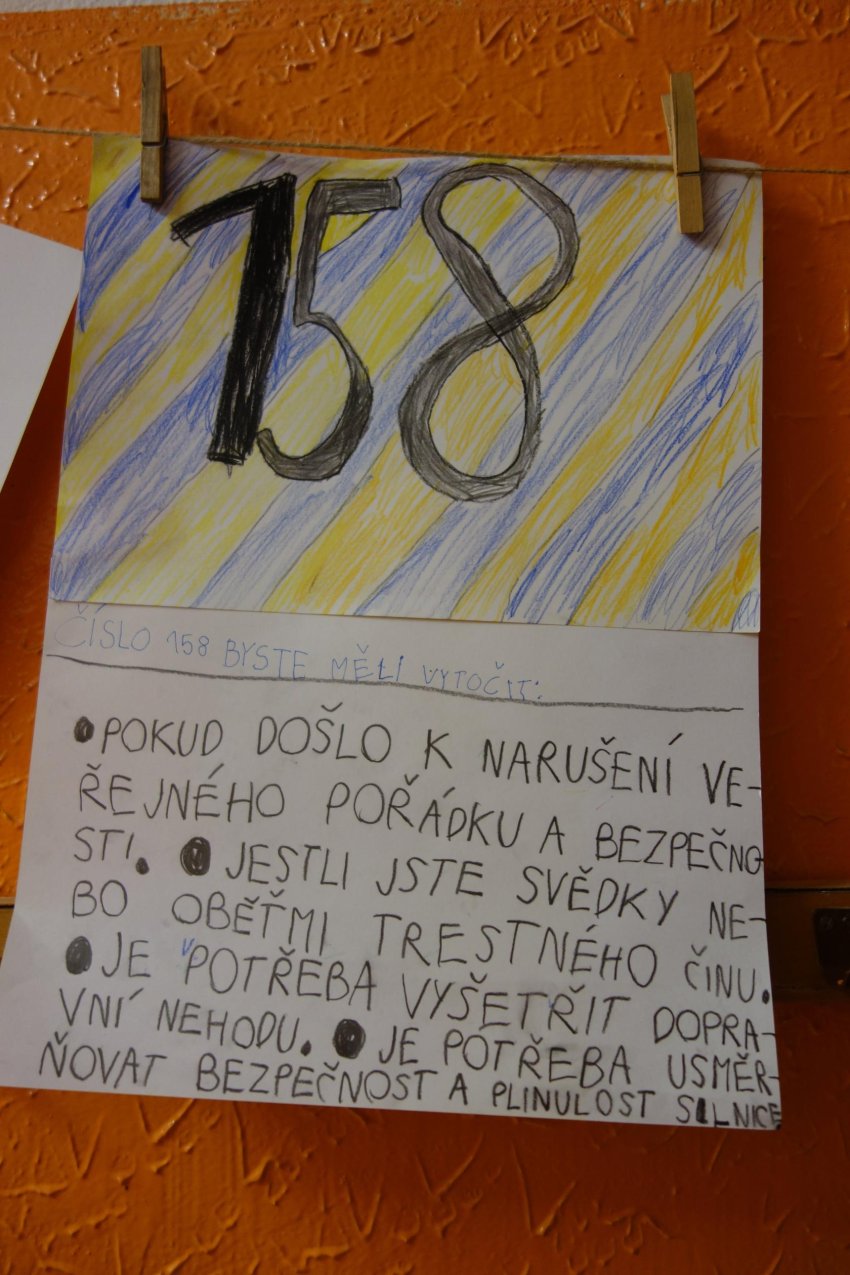 158
ČÍSLO 158 BYSTE MĚLI VYTOČIT:
•POKUD DOŠLO K NARUŠENÍ VE-
ŘEJNÉHO POŘÁDKU A BEZPEČNO
STI. • JESTLI JSTE SVĚDKY NE-
BO OBĚŤMI TRESTNÉHO ČINU.
•JE POTŘEBA VYŠETŘIT DOPRA-
VNÍ NEHODU. • JE POTŘEBA USMĚR-
ŇOVAT BEZPEČNOST A PLINULOST SILNICE